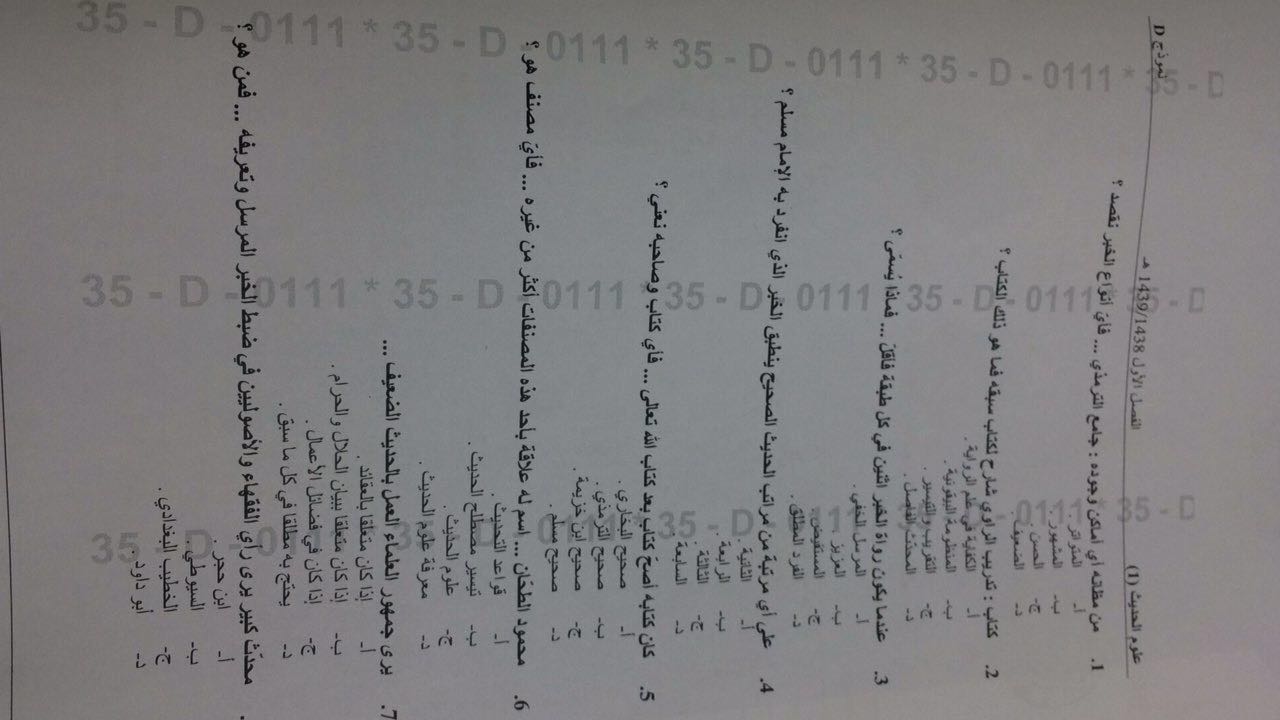 علوم الحديث (1) الفصل الأول 1439/1438 هـ نموذج D
1. من مظانّه أي أمكن وجوده : جامع الترمذي ... فأيّ أنواع الخبر نقصد ؟
أ- المتواتر .
ب- المشهور .
ج- الحسن .
د- الضعيف .
2. كتاب : تدريب الراوي شارح لكتاب سبقه فما هو ذلك الكتاب ؟
أ- الكفاية في علم الرواية .
ب- المنظومة البيقونية .
ج- التقريب والتيسير .
د- المحدث الفاصل .
3. عندما يكون رواة الخبر اثنين في كل طبقة فأقلّ ... فماذا يُسمّى ؟
أ- المرسل الخفي .
ب- العزيز .
ج- المستفيض .
د- الفرد المطلق .
4. على أي مرتبة من مراتب الحديث الصحيح ينطبق الخبر الذي انفرد به الإمام مسلم ؟
أ- الثانية .
ب- الرابعة .
ج- الثالثة .
د- السابعة .
5. كان كتابه أصح كتاب بعد كتاب الله تعالى ... فأي كتاب وصاحبه نعني ؟
أ- صحيح البخاري .
ب- صحيح الترمذي .
ج- صحيح ابن خزيمة .
د- صحيح مسلم .
6. محمود الطحّان ... اسم له علاقة بأحد هذه المصنفات أكثر من غيره ... فأيّ مصنف هو ؟
أ- قواعد التحديث .
ب- تيسير مصطلح الحديث .
ج- علوم الحديث .
د- معرفة علوم الحديث .
7. يرى جمهور العلماء العمل بالحديث الضعيف ...
أ- إذا كان متعلقا بالعقائد .
ب- إذا كان متعلقا ببيان الحلال والحرام .
ج- إذا كان في فضائل الأعمال .
د- يحتج به مطلقا في كل ما سبق .
محدّث كبير يرى رأي الفقهاء والأصوليين في ضبط الخبر المرسل وتعريفه ... فمن هو ؟
أ- ابن حجر .
ب- السيوطي .
ج- الخطيب البغدادي .
د- أبو داود .
35 - D - 0111 * 35 - D - 0111 * 35 - D - 0111 * 35 - D - 0111 * 35 - D
35 - D - 0111 * 35 - D - 0111 * 35 - D - 0111 * 35 - D - 0111 * 35 - D
35 - D - 0111 * 35 - D - 0111 * 35 - D - 0111 * 35 - D - 0111 * 35 - D